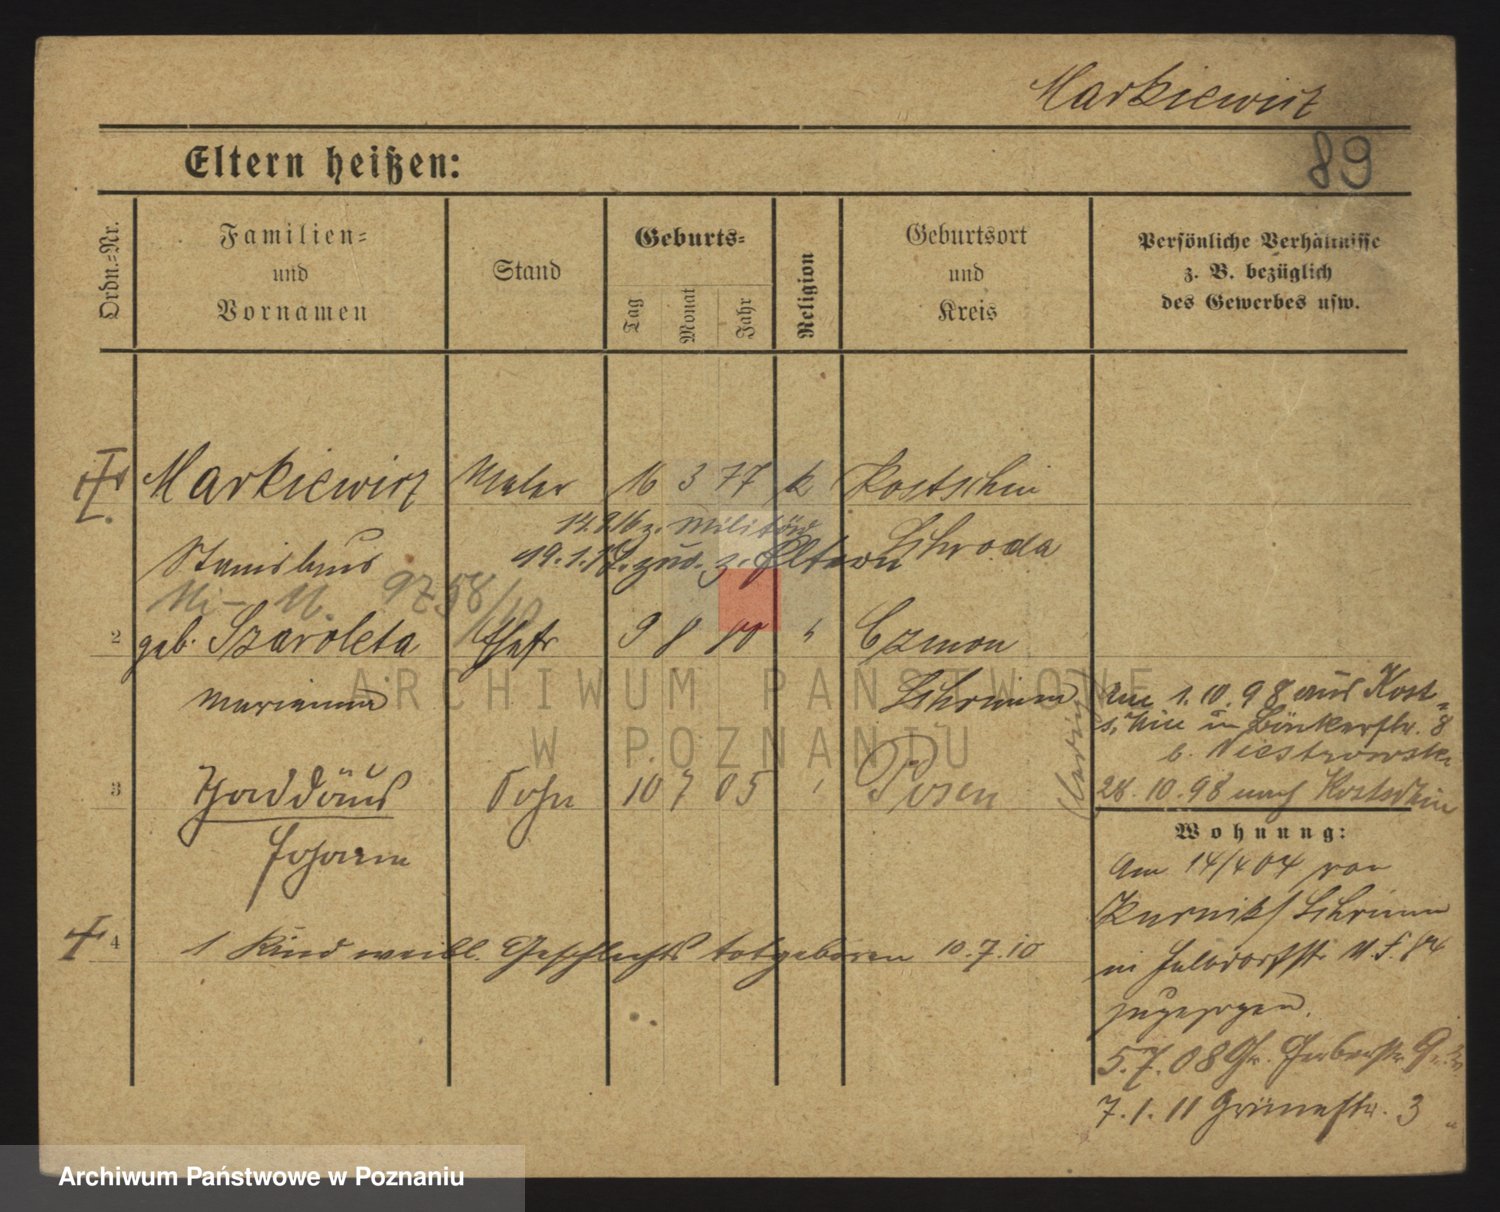 Markiewicz
89
Eltern heißen:
Ordn.-Nr.
Familien-
und
Vornamen
Stand
Geburts-
Tag
Monat
Jahr
Religion
Geburtsort
und
Kreis
Persönliche Verhältnisse
z. B. bezüglich
des Gewerbes usw.
Markiewicz Maler 16 3 77 k Kostschin
14.8.16 z. Militär Schroda
Stanislaus 19.1.19. zur. z. Eltern
2 geb. Szaroleta Ehefr 9 8 80 " Czmon
Marianna Schrimm
3 Thaddäus Sohn 10 7 05 " Posen
Johann
4 1 Kind weibl. Geschlechts totgeboren 10.7.10
Am 1.10.98 aus Kost-
schin in Bönkerstr. 8
b.
28.10.98 nach Kostschin
Wohnung:
Am 14/4 04 von
Kurnik/Schrimm
in
zugezogen.
5.7.08 Gr. Gerberstr. 9
7.1.11 Grünestr. 3
ARCHIWUM PAŃSTWOWE
W POZNANIU
Archiwum Państwowe w Poznaniu